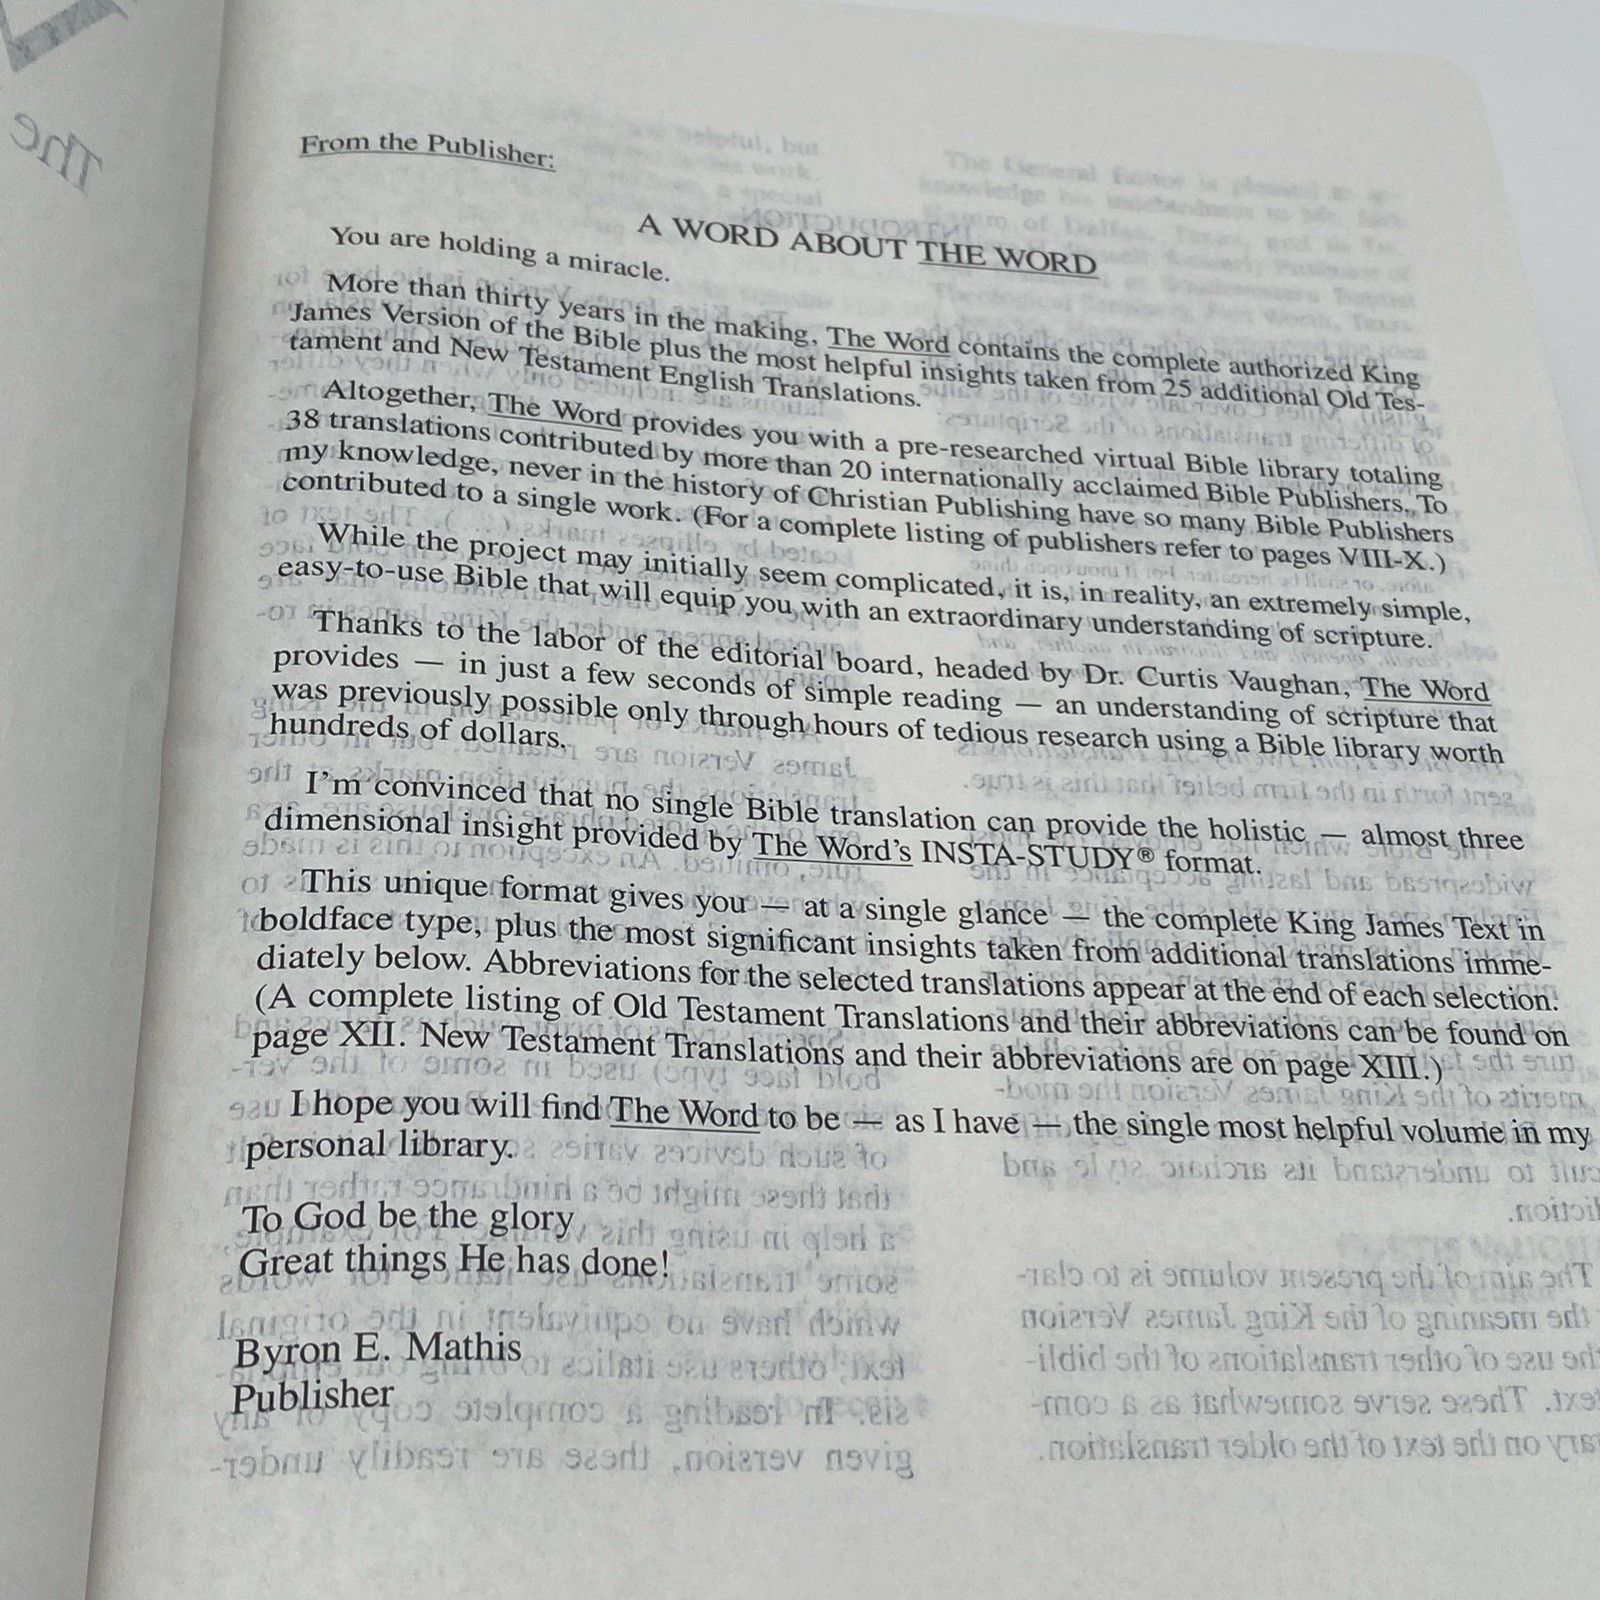 The
From the Publisher:
A WORD ABOUT THE WORD
You are holding a miracle.
More than thirty years in the making, The Word contains the complete authorized King
James Version of the Bible plus the most helpful insights taken from 25 additional Old Tes-
tament and New Testament English Translations.
Altogether, The Word provides you with a pre-researched virtual Bible library totaling
38 translations contributed by more than 20 internationally acclaimed Bible Publishers. To
my knowledge, never in the history of Christian Publishing have so many Bible Publishers
contributed to a single work. (For a complete listing of publishers refer to pages VIII-X.)
While the project may initially seem complicated, it is, in reality, an extremely simple,
easy-to-use Bible that will equip you with an extraordinary understanding of scripture.
Thanks to the labor of the editorial board, headed by Dr. Curtis Vaughan, The Word
provides — in just a few seconds of simple reading — an understanding of scripture that
was previously possible only through hours of tedious research using a Bible library worth
hundreds of dollars.
I'm convinced that no single Bible translation can provide the holistic — almost three
dimensional insight provided by The Word's INSTA-STUDY® format.
This unique format gives you — at a single glance — the complete King James Text in
boldface type, plus the most significant insights taken from additional translations imme-
diately below. Abbreviations for the selected translations appear at the end of each selection.
(A complete listing of Old Testament Translations and their abbreviations can be found on
page XII. New Testament Translations and their abbreviations are on page XIII.)
I hope you will find The Word to be — as I have — the single most helpful volume in my
personal library.
To God be the glory
Great things He has done!
Byron E. Mathis
Publisher